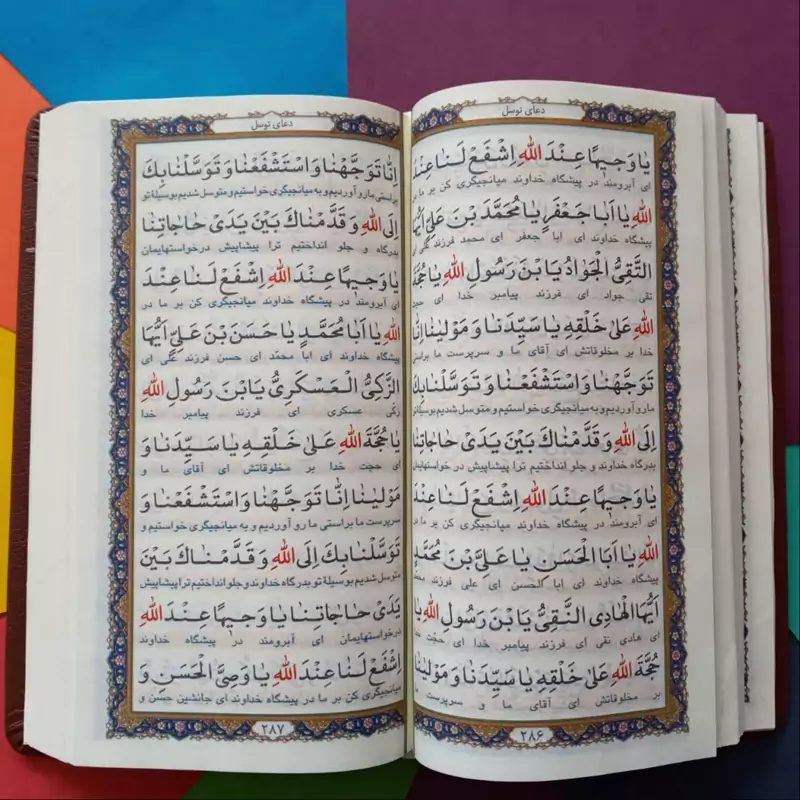 دعای توسل
یا وَجیهًا عِنْدَ اللهِ اِشْفَعْ لَنا عِنْدَ
ای آبرومند در پیشگاه خداوند میانجیگری کن بر ما در
اللهِ یا اَبا جَعْفَرٍ یا مُحَمَّدَ بْنَ عَلِیٍّ اَیُّهَا
پیشگاه خداوند ای ابا جعفر ای محمد فرزند علی ای
التَّقِیُّ الْجَوادُ یَابْنَ رَسُولِ اللهِ یا حُجَّةَ
تقی جواد ای فرزند پیامبر خدا ای حجت
اللهِ عَلیٰ خَلْقِهِ یا سَیِّدَنا وَ مَوْلینا اِنّا
خدا بر مخلوقاتش ای آقای ما و سرپرست ما براستی
تَوَجَّهْنا وَ اسْتَشْفَعْنا وَ تَوَسَّلْنا بِكَ
ما رو آوردیم و به میانجیگری خواستیم و متوسل شدیم بوسیله تو
اِلَی اللهِ وَ قَدَّمْناكَ بَیْنَ یَدَیْ حاجاتِنا
بدرگاه خداوند و جلو انداختیم ترا پیشاپیش درخواستهایمان
یا وَجیهًا عِنْدَ اللهِ اِشْفَعْ لَنا عِنْدَ
ای آبرومند در پیشگاه خداوند میانجیگری کن بر ما در
اللهِ یا اَبَا الْحَسَنِ یا عَلِیَّ بْنَ مُحَمَّدٍ
پیشگاه خداوند ای ابا الحسن ای علی فرزند محمد
اَیُّهَا الْهادِی النَّقِیُّ یَابْنَ رَسُولِ اللهِ یا
ای هادی نقی ای فرزند پیامبر خدا ای حجت خدا
حُجَّةَ اللهِ عَلیٰ خَلْقِهِ یا سَیِّدَنا وَ مَوْلینا
بر مخلوقاتش ای آقای ما و سرپرست ما
۲۸۶
دعای توسل
اِنّا تَوَجَّهْنا وَ اسْتَشْفَعْنا وَ تَوَسَّلْنا بِكَ
براستی ما رو آوردیم و به میانجیگری خواستیم و متوسل شدیم بوسیله تو
اِلَی اللهِ وَ قَدَّمْناكَ بَیْنَ یَدَیْ حاجاتِنا
بدرگاه خداوند و جلو انداختیم ترا پیشاپیش درخواستهایمان
یا وَجیهًا عِنْدَ اللهِ اِشْفَعْ لَنا عِنْدَ
ای آبرومند در پیشگاه خداوند میانجیگری کن بر ما در
اللهِ یا اَبا مُحَمَّدٍ یا حَسَنَ بْنَ عَلِیٍّ اَیُّهَا
پیشگاه خداوند ای ابا محمّد ای حسن فرزند علی ای
الزَّکِیُّ الْعَسْکَرِیُّ یَابْنَ رَسُولِ اللهِ
زکی عسکری ای فرزند پیامبر خدا
یا حُجَّةَ اللهِ عَلیٰ خَلْقِهِ یا سَیِّدَنا وَ
ای حجت خدا بر مخلوقاتش ای آقای ما و
مَوْلینا اِنّا تَوَجَّهْنا وَ اسْتَشْفَعْنا وَ
سرپرست ما براستی ما رو آوردیم و به میانجیگری خواستیم و
تَوَسَّلْنا بِكَ اِلَی اللهِ وَ قَدَّمْناكَ بَیْنَ
متوسل شدیم بوسیله تو بدرگاه خداوند و جلو انداختیم ترا پیشاپیش
یَدَیْ حاجاتِنا یا وَجیهًا عِنْدَ اللهِ
درخواستهایمان ای آبرومند در پیشگاه خداوند
اِشْفَعْ لَنا عِنْدَ اللهِ یا وَصِیَّ الْحَسَنِ وَ
میانجیگری کن بر ما در پیشگاه خداوند ای جانشین حسن و
۲۸۷